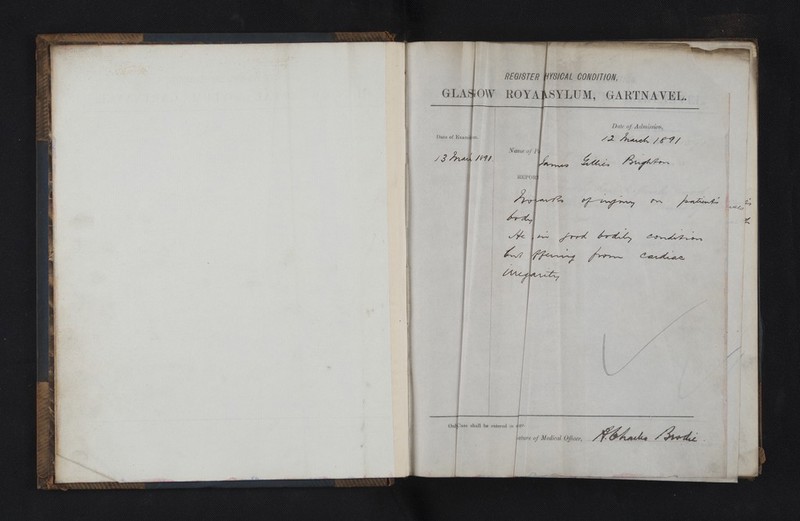 REGISTER HYSICAL CONDITION,
GLASOW ROYA ASYLUM, GARTNAVEL.
Date of Admission,
12 March 1891
Date of Examion.
Name of P
13 March 1891
James Gillies Brighton
REPOR
No arks of injury on patient's
body
He in good bodily condition
but ffering from cardiac
irregarity
Only shall be entered in
ature of Medical Officer, R. Charles Brodie.